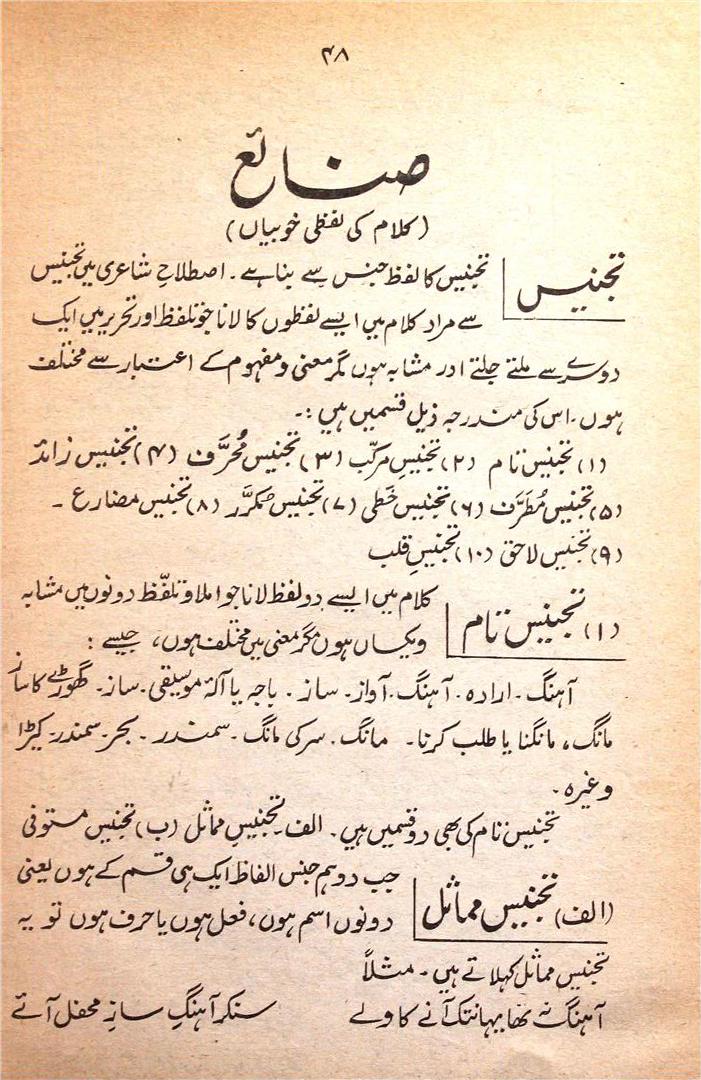 ۴۸
صنائع
(کلام کی لفظی خوبیاں)
تجنیس
تجنیس کا لفظ جنس سے بنا ہے۔ اصطلاحِ شاعری میں تجنیس
سے مراد کلام میں ایسے لفظوں کا لانا جو تلفظ اور تحریر میں ایک
دوسرے سے ملتے جلتے اور مشابہ ہوں مگر معنی و مفہوم کے اعتبار سے مختلف
ہوں۔ اس کی مندرجہ ذیل قسمیں ہیں :۔
(۱) تجنیس تام (۲) تجنیسِ مرکّب (۳) تجنیس مُحرَّف (۴) تجنیس زائد
(۵) تجنیس مُطَرَّف (۶) تجنیس خَطی (۷) تجنیس مُکرَّر (۸) تجنیس مضارع ۔
(۹) تجنیس لاحق (۱۰) تجنیسِ قلب
(۱) تجنیس تام
کلام میں ایسے دو لفظ لانا جو املا و تلفّظ دونوں میں مشابہ
و یکساں ہوں مگر معنی میں مختلف ہوں، جیسے :
آہنگ۔ ارادہ۔ آہنگ۔ آواز۔ ساز۔ باجہ یا آلۂ موسیقی۔ ساز۔ گھوڑے کا ساز
مانگ، مانگنا یا طلب کرنا۔ مانگ۔ سر کی مانگ۔ سمندر۔ بحر۔ سمندر۔ کیڑا
وغیرہ۔
تجنیس تام کی بھی دو قسمیں ہیں۔ الف۔ تجنیسِ مماثل (ب) تجنیس مستوفی
(الف) تجنیس مماثل
جب دو ہم جنس الفاظ ایک ہی قسم کے ہوں یعنی
دونوں اسم ہوں، فعل ہوں یا حرف ہوں تو یہ
تجنیس مماثل کہلاتے ہیں۔ مثلاً
آہنگ نہ تھا یہانتک آنے کا ولے سنکر آہنگِ سازِ محفل آئے